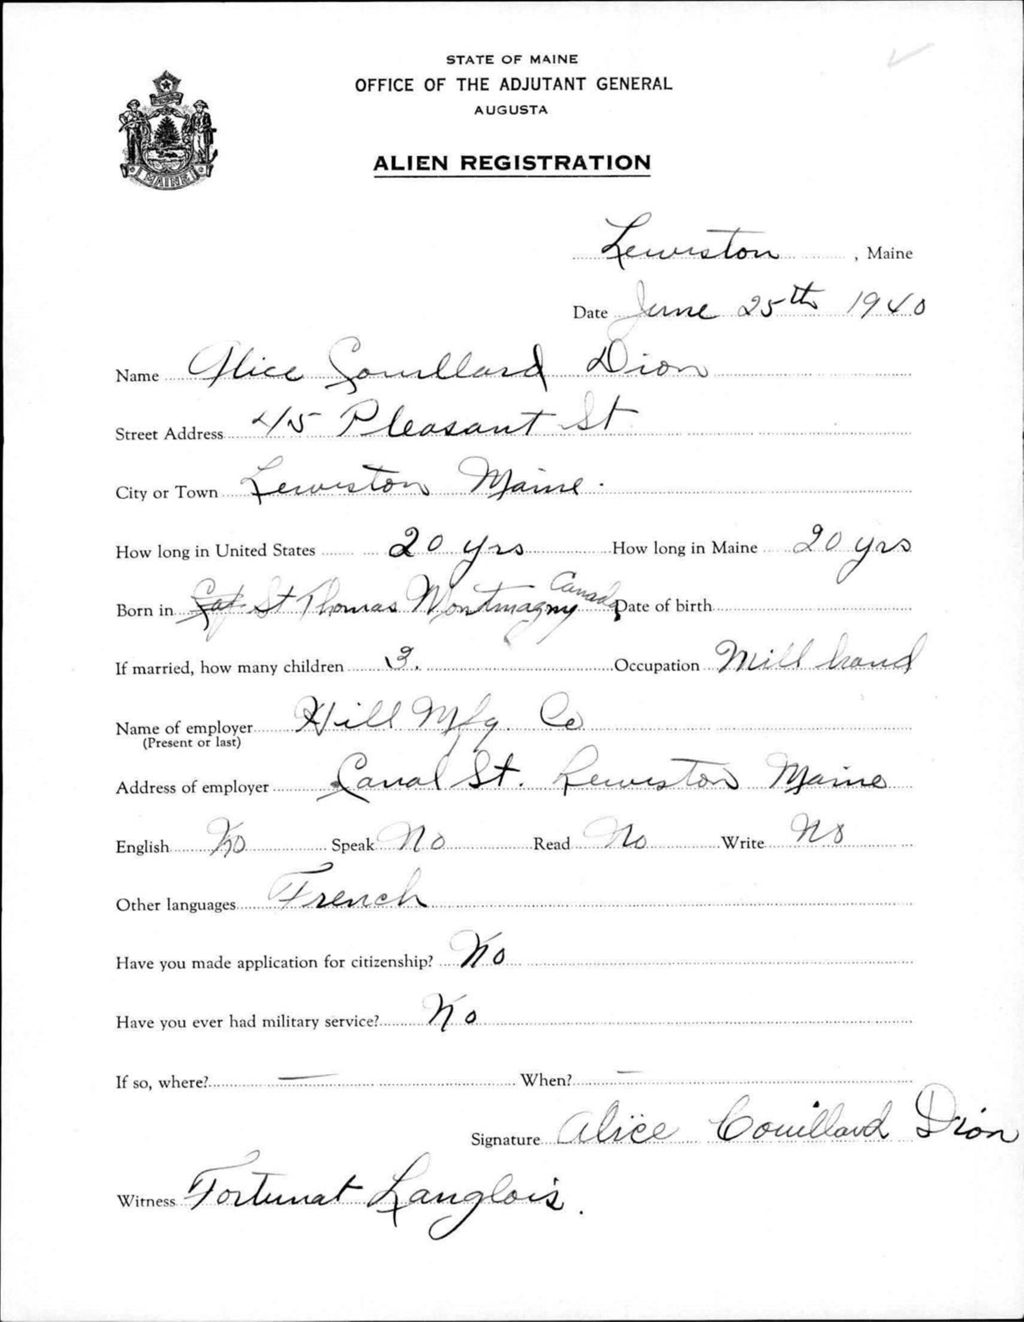 STATE OF MAINE
OFFICE OF THE ADJUTANT GENERAL
AUGUSTA
ALIEN REGISTRATION
MAINE
Lewiston, Maine
Date June 25th 1940
Name Alice Couillard Dion
Street Address 415 Pleasant St
City or Town Lewiston Maine.
How long in United States 20 yrs How long in Maine 20 yrs
Born in St Thomas Montmagny Canada Date of birth
If married, how many children 3. Occupation Mill hand
Name of employer Hill Mfg. Co
(Present or last)
Address of employer Canal St. Lewiston Maine
English No Speak No Read No Write No
Other languages French
Have you made application for citizenship? No
Have you ever had military service? No
If so, where? — When? —
Signature Alice Couillard Dion
Witness Fortunat Langlois.